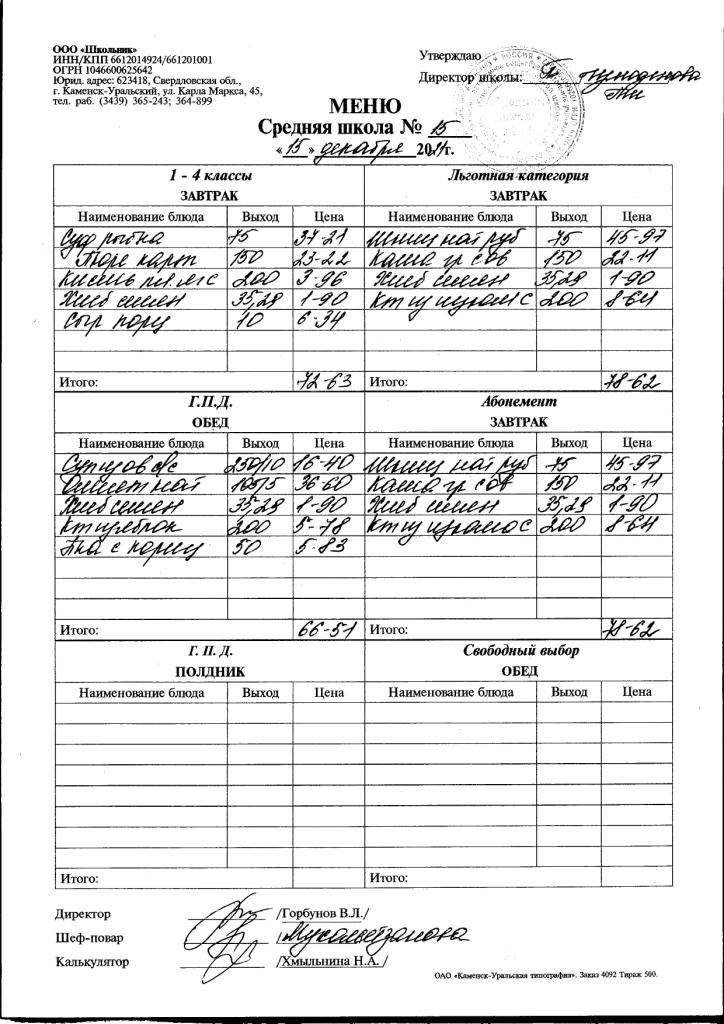 ООО «Школьник»
ИНН/КПП 6612014924/661201001
ОГРН 1046600625642
Юрид. адрес: 623418, Свердловская обл.,
г. Каменск-Уральский, ул. Карла Маркса, 45,
тел. раб. (3439) 365-243; 364-899
Утверждаю
Директор школы:
МЕНЮ
Средняя школа № 15
«15» декабря 2021г.
1 - 4 классы Льготная категория
ЗАВТРАК ЗАВТРАК
Наименование блюда Выход Цена Наименование блюда Выход Цена
Суф рыбна 75 37-21 Шниц нат руб 75 45-97
Пюре карт 150 23-22 Каша гр 150 22-11
Кисель 200 3-96 Хлеб 35,29 1-90
Хлеб 35,29 1-90 200 8-64
Сыр порц 10 6-34
Итого: 72-63 Итого: 78-62
Г.П.Д. Абонемент
ОБЕД ЗАВТРАК
Наименование блюда Выход Цена Наименование блюда Выход Цена
250/10 16-40 Шниц нат руб 75 45-97
Омлет нат 105/5 36-60 Каша гр 150 22-11
Хлеб 35,29 1-90 Хлеб 35,29 1-90
200 5-78 200 8-64
50 5-83
Итого: 66-51 Итого: 78-62
Г. П. Д. Свободный выбор
ПОЛДНИК ОБЕД
Наименование блюда Выход Цена Наименование блюда Выход Цена
Итого: Итого:
Директор /Горбунов В.Л./
Шеф-повар
Калькулятор /Хмыльнина Н.А. /
ОАО «Каменск-Уральская типография». Заказ 4092 Тираж 500.